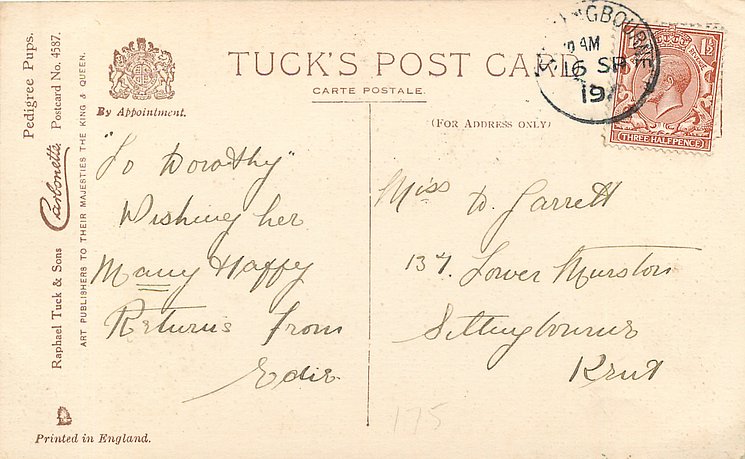 Pedigree Pups.
Raphael Tuck & Sons Carbonette Postcard No. 4587.
ART PUBLISHERS TO THEIR MAJESTIES THE KING & QUEEN.
By Appointment.
TUCK'S POST CARD
CARTE POSTALE.
(FOR ADDRESS ONLY)
NGBOURNE
AM
16 SP
19
THREE HALFPENCE
"To Dorothy"
Wishing her
Many Happy
Returns from
Edie
Miss D. Garrett
137. Lower Murston
Sittingbourne
Kent
175
Printed in England.